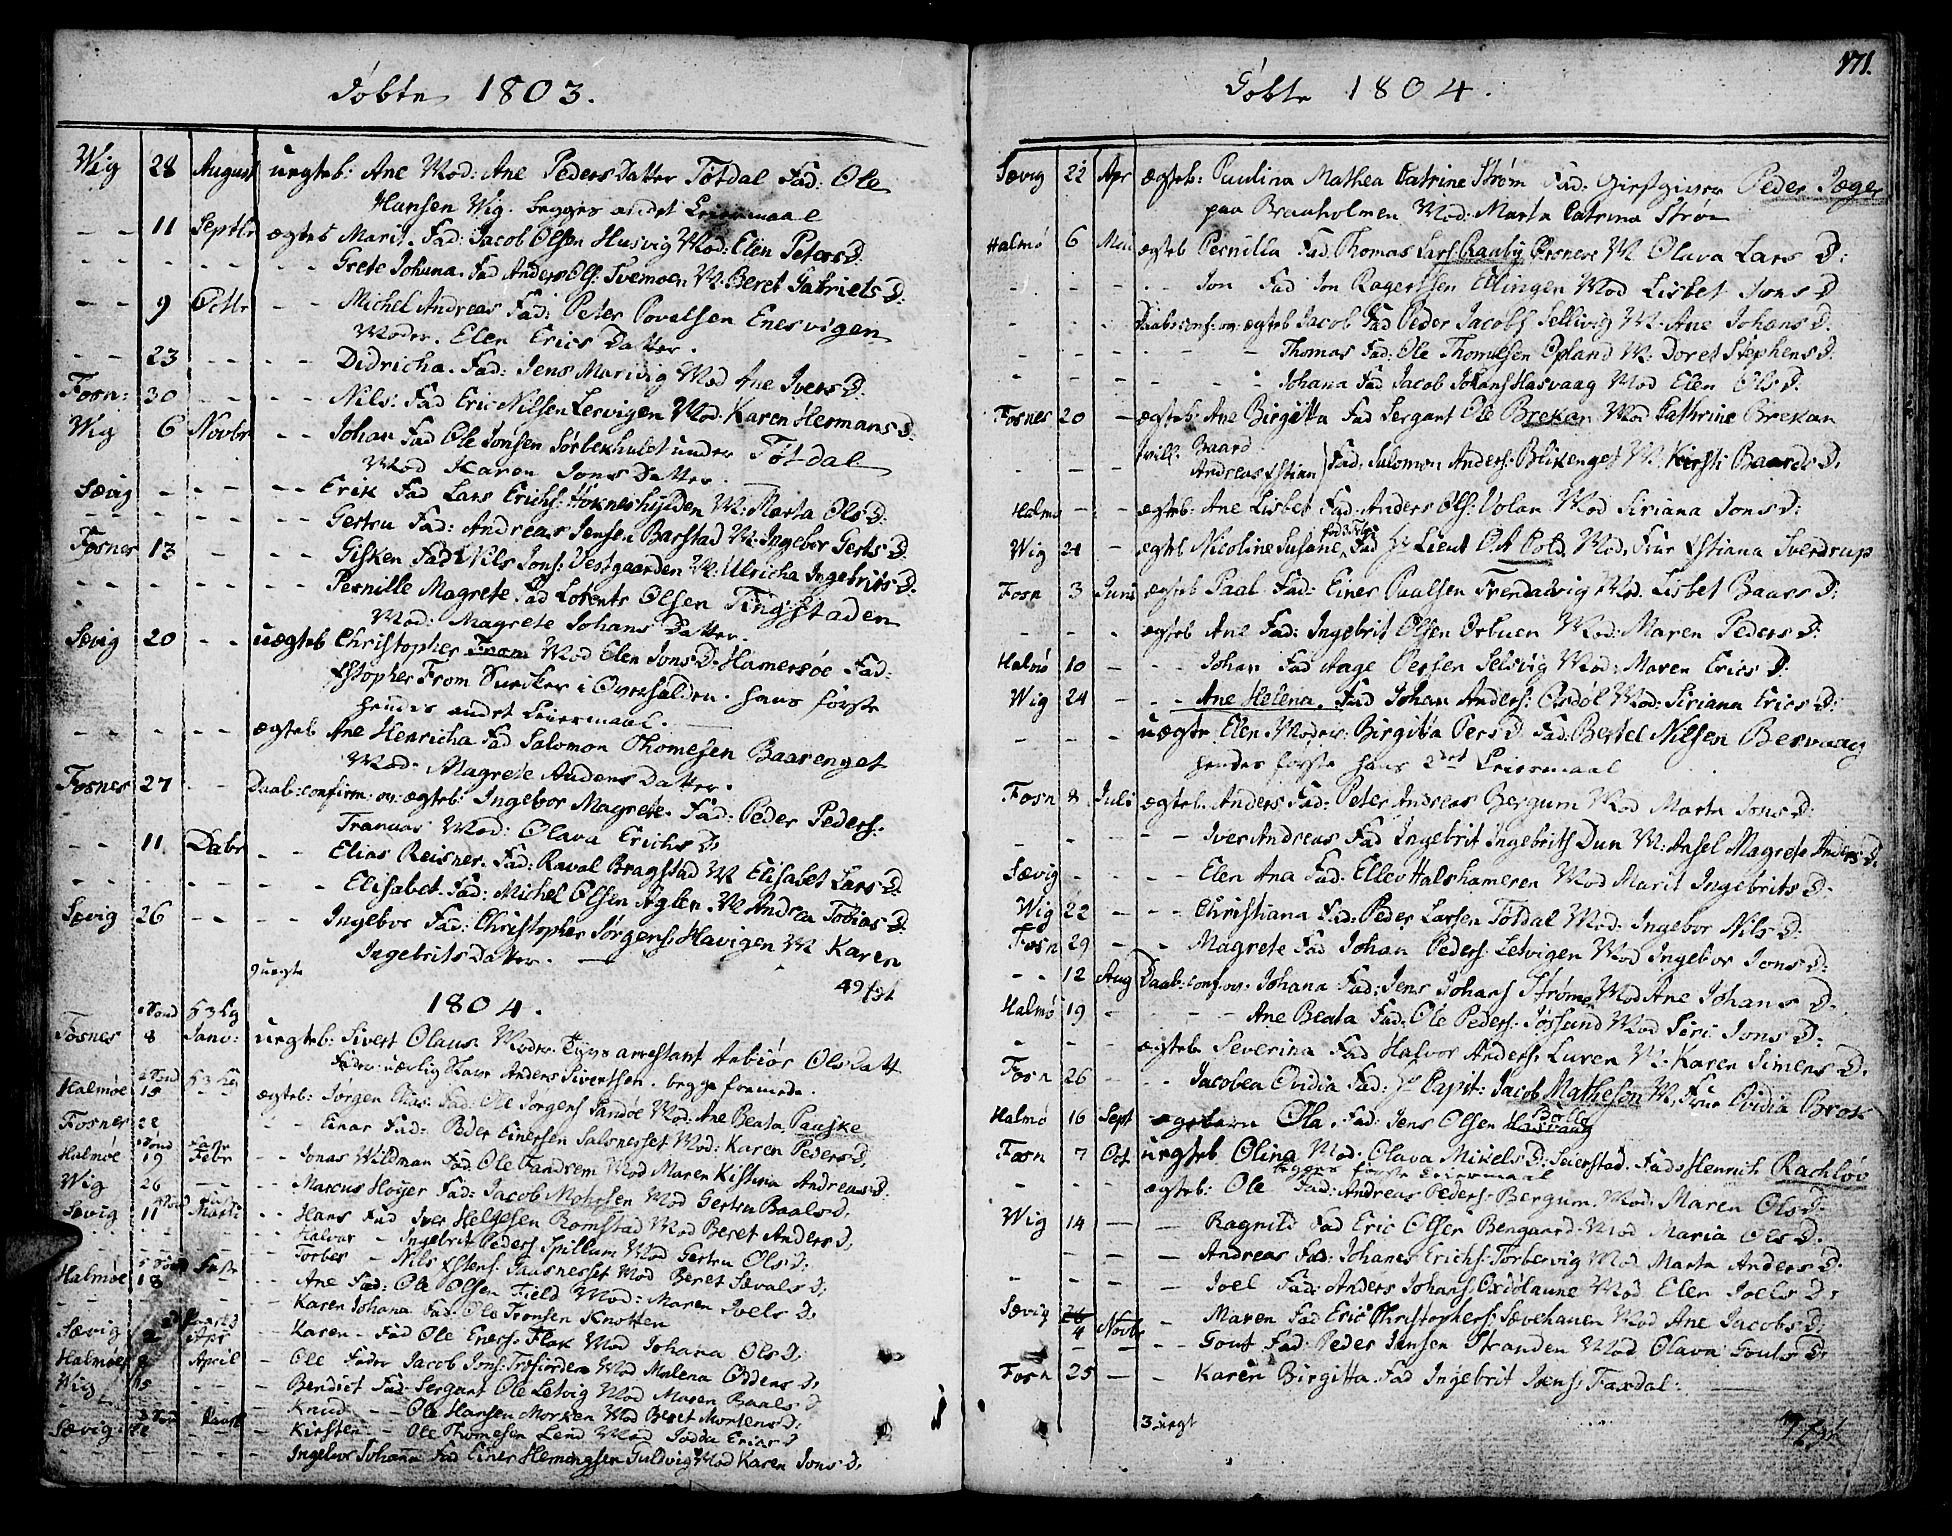 Døbte 1803.
Wig 28 August uegteb: Ane Mod: Ane Peders Datter Tøtdal Fad: Ole
Hansen Wig. begges andet Leiermaal
- - 11 Septbr ægteb Marit. Fad: Jacob Olsen Husvig Mod: Elen Peters D:
- - - - - - Grete Johana. Fad Anders Ols: Tvemoen M. Beret Gabriels D:
- - 9 Octbr - - Michel Andreas Fad: Peter Povelsen Enesvigen
Moder. Elen Erics Datter.
- - 23 - - - - Didricha. Fad: Jens Marivig Mod Ane Ivers D:
Fosn: 30 - - - - Nils: Fad Eric Nilsen Lesvigen Mod: Karen Hermans D:
Wig 6 Novbr - - Johan Fad Ole Jonsen Sørbekhulet under Tøtdal
Mod Karen Jons Datter.
Sævig - - - - - Erik Fad Lars Erichs: Høkneshylden M: Marta Ols D:
- - - - - - Gertru Fad: Andreas Jense: Barstad M: Ingebor Gerts D:
Fosnes 13 - - - Gisken Fad Nils Jons: Vestgaarden M: Ulricha Ingebrits D:
- - - - - - Pernille Magrete. Fad Lorents Olsen Tingstaden
Mod: Magrete Johans Datter.
Sævig 20 - - uægteb Christopher From Mod Elen Jons D: Hamersøe Fad:
Xstopher From Snecker i Overhalden. hans første
hendes andet Leiermaal.
- - - - ægteb Ane Henricha Fad Salomon Thomesen Baarenget
Mod: Magrete Andens Datter.
Fosnes 27 - - Daab: confirm: ov: ægteb: Ingebor Magrete. Fad: Peder Peders:
Tranaas Mod: Olava Erichs D,
- - 11 Decbr - - Elias Reisner. Fad: Raval Bragstad M Elisabet Lars D.
- - - - - - Elisabet. Fad: Michel Olsen Aglen. M Andrea Tobias D.
Sævig 26 - - - - Ingebor Fad: Christopher Jørgens: Havigen M Karen
Ingebrits Datter.
9 uegte
1804.
Fosnes 8 Janv: uegteb: Sivert Olaus Moder. Tugtsarrestant Aebiør Ols Datt
Fader: uærlig Slave Anders Sivertsen. begge fremede.
Halmøe 15 - - ægteb: Jørgen Elias: Fad: Ole Jørgens Sandøe Mod: Ane Beata Pauske
Fosnes 22 - - Einar Fad: Peder Einersen Salsnesset Mod: Karen Peders D.
Halmøe 19 Febr - - Jonas Wildman Fad. Ole Fandrem Mod Maren Kistina Andreas D:
Wig 26 - - Marcus Høyer Fad: Jacob Mohrsen Mod Gertru Baals D,
Sævig 11 Marti - - Hans Fad Iver Helgesen Romstad Mod Beret Anders D,
- - Halvor - Ingebrit Peders Spillum Mod Gertru Ols D:
- - Torber - Nils Xstens: Gaasnesset Mod Beret Sævals D,
Halmøe 18 - - Ane Fad: Ole Olsen Field Mod: Maren Joels D,
Karen Johana Fad: Ole Tronsen Knotten
Sævig 2 Apr - - Karen - Fad Ole Eners: Flak Mod Johana Ols D,
Halmøe 8 April - Ole Fader Jacob Jons: Trøfiorden Mod Malena Oddens D,
Wig 15 - - Bendict Fad: Sergant Ole Letvig Mod Maren Baals D
- Knud - - Ole Hansen Morken Mod Beret Mortens D:
Sævig - Kirsten - - Ole Thomesen Lend Mod Jødda Erics D
Ingebor Johana Fad Einer Hemingsen Guldvig Mod Karen Jons D,
171.
Døbte 1804.
Sævig 22 Apr ægteb: Paulina Mathea Catrine Strøm Fad: Giestgiver Peder Jæger
paa Braaholmen Mod: Marta Catrina Strøm
Halmø 6 Mai ægteb Pernilla Fad. Thomas Lars: Raaby Fosnere M Olava Lars D:
- - - - Jon Fad Jon Ragertsen Ellingen Mod Lisbet Jons D
- - - Daabs conf: ov: ægteb Jacob Fad Peder Jacobs Sellivig M. Ane Johans D.
- - - Thomas Fad: Ole Thomesen Opland M: Doret Stephens D:
- - - Johana Fad Jacob Johans Hasvaag Mod Elen Ols D:
Fosnes 20 - ægteb: Ane Birgitta Fad Sergant Ole Brekan Mod Cathrine Brekan
- - - tvill: Baard
Andreas Xstian } Fad: Salomon Anders: Blikenget M. Kirsti Baards D.
Halmø - - ægteb: Ane Lisbet Fad: Anders Ols: Volan Mod Siriana Jons D:
Wig 21 - ægteb Nicoline Susane, Fad Hr Lieut Ott Cold, Mod, Frue Xstiana Sverdrup
Fosn 3 Juni ægteb Paal Fad: Einer Paalsen Trendavig Mod. Lisbet Baars D:
- - - ægteb Ane Fad: Ingebrit Olsen Ørbuen Mod: Maren Peders D:
Halmø 10 - - - Johan Fad Aage Persen Selsvig Mod: Maren Erics D.
Wig 24 - - - Ane Helena. Fad Johan Anders: Opdøl Mod: Siriana Erics D:
- - - uægte. Elen Moder: Birgita Pers D. Fad: Bertel Nilsen Besvaag
hendes første hans 2det Leiermaal
Fosn 8 Juli ægteb. Anders Fad: Peter Andreas Bergum Mod Marta Jons D:
- - - - Iver Andreas Fad Ingebrit Ingebrits Dun M: Ansel Magrete Anders D,
Sævig - - - Elen Ana Fad: Ellev Halshameren Mod Marit Ingebrits D.
Wig 22 - - - Christiana Fad: Peder Larsen Tøtdal Mod: Ingebor Nils D:
Fosn 29 - - Magrete Fad Johan Peders: Letvigen Mod Ingebor Jons D:
- - 12 Aug Daab: conf ov: Johana Fad: Jens Johans Strøms Mod Ane Johans D.
Halmø 19 - - - Ane Beata Fad: Ole Peders: Søssund Mod Siri Jons D:
- - - ægteb Severina Fad Halvor Anders: Luren M: Karen Simens D.
Fosn 26 - - - Jacobea Ovidia Fad: Hr Capit: Jacob Matheson M. Frue Ovidia Brok
Halmø 16 Sept - egteb Ola. Fad: Jens Olsen
Fosn 7 Oct uegteb Olina Mod: Olava Mikels D: Seierstad. Fad: Henrich Rachløv
begges første Leiermaal
- - - ægteb: Ole Fad: Andreas Peders: Bergum. Mod: Maren Ols D:
Wig 14 - - Ragnild Fad Eric Olsen Bengaard Mod Maria Ols D.
- - - - Andreas Fad: Johanes Erichs: Torbervig Mod Marta Anders D.
- - - - Joel Fad: Anders Johans Oxdølaune Mod Elen Joels D:
Sævig 4 Novbr - Maren Fad Eric Christophers: Sævehauen Mod Ane Jacobs D:
- - - - Gout Fad: Peder Jensen Stranden Mod Olava Gouls D:
Fosn 25 - - Karen Birgitta Fad Ingebrit Jens: Faxdal:
3 uegt